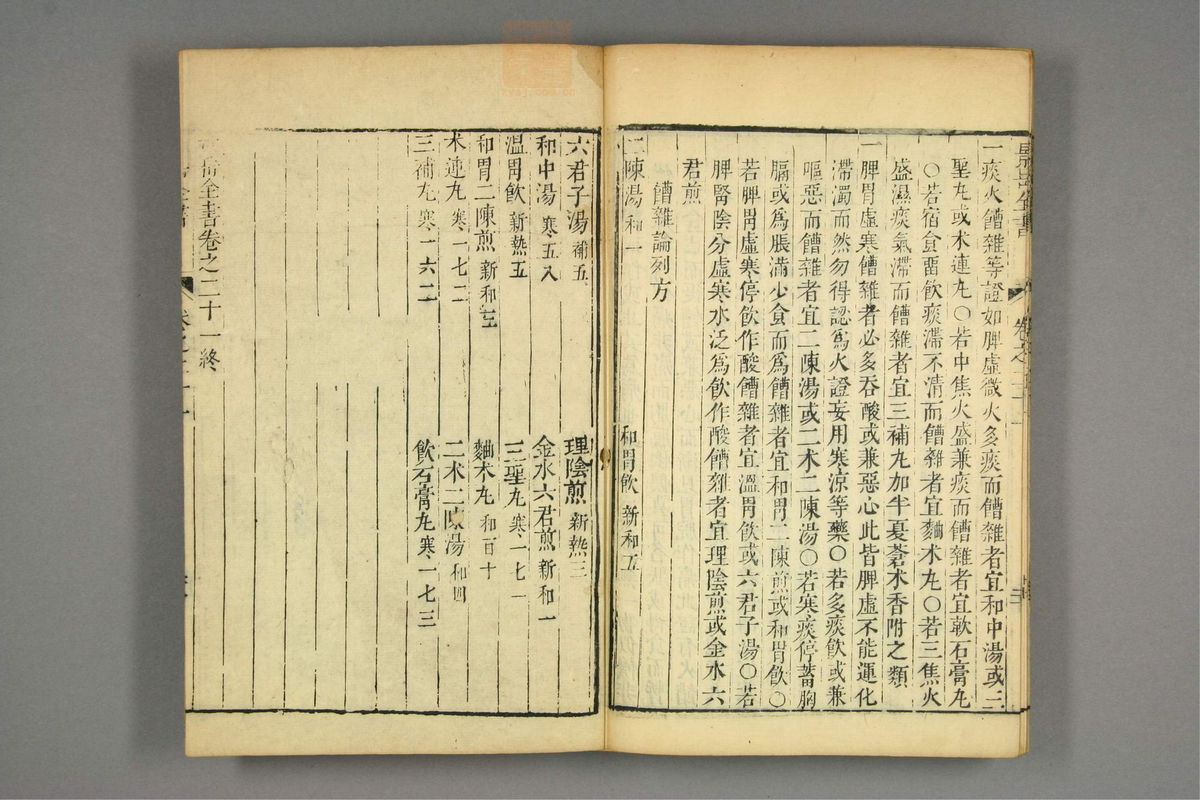 一痰火饒雜等證如脾虛微火多痰而饒雜者宜和中湯或三
聖丸或朮連丸○若中焦火盛兼痰而饒雜者宜軟石膏丸
○若宿食畱飲痰滯不清而饒雜者宜麯朮丸○若三焦火
盛濕痰氣滯而饒雜者宜三補丸加半夏蒼朮香附之類
一脾胃虛寒饒雜者必多吞酸或兼惡心此皆脾虛不能運化
滯濁而然勿得認爲火證妄用寒涼等藥○若多痰飲或兼
嘔惡而饒雜者宜二陳湯或二朮二陳湯○若寒痰停蓄胸
膈或爲脹滿少食而爲饒雜者宜和胃二陳煎或和胃飲○
若脾胃虛寒停飲作酸饒雜者宜溫胃飲或六君子湯○若
脾腎陰分虛寒水泛爲飲作酸饒雜者宜理陰煎或金水六
君煎
饒雜論列方
二陳湯 和一
和胃飲 新和五
六君子湯 補五
理陰煎 新熱三
和中湯 寒五八
金水六君煎 新和一
溫胃飲 新熱五
三聖丸 寒一七一
和胃二陳煎 新和三
麯朮丸 和百十
朮連丸 寒一七二
二朮二陳湯 和四
三補丸 寒一六二
飲石膏丸 寒一七三
岳全書卷之二十一終